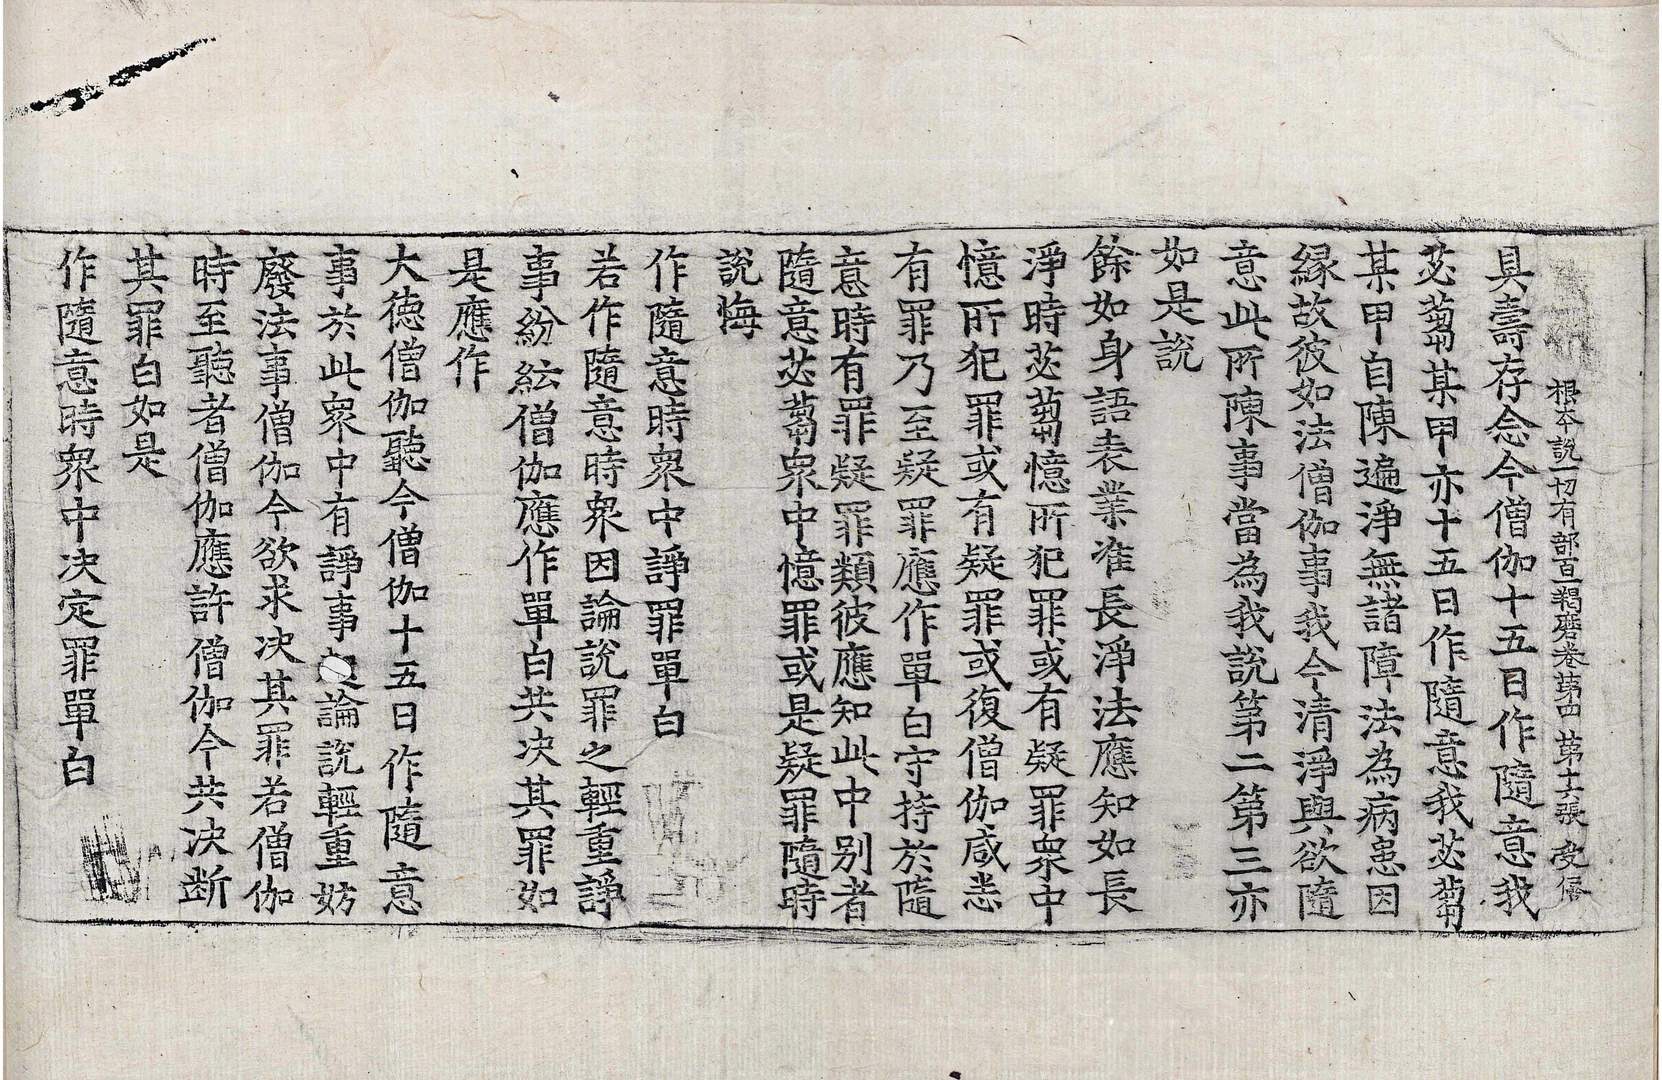 根本說一切有部百一羯磨卷第四 第十六張 受
具壽存念今僧伽十五日作隨意我
苾蒭某甲亦十五日作隨意我苾蒭
某甲自陳遍淨無諸障法為病患因
緣故彼如法僧伽事我今清淨與欲隨
意此所陳事當為我說第二第三亦
如是說
餘如身語表業准長淨法應知如長
淨時苾蒭憶所犯罪或有疑罪衆中
憶所犯罪或有疑罪或復僧伽咸悉
有罪乃至疑罪應作單白守持於隨
意時有罪疑罪類彼應知此中别者
隨意苾蒭衆中憶罪或是疑罪隨時
說悔
作隨意時衆中諍罪單白
若作隨意時衆因論說罪之輕重諍
事紛紜僧伽應作單白共决其罪如
是應作
大德僧伽聽今僧伽十五日作隨意
事於此衆中有諍事論說輕重妨
廢法事僧伽今欲求决其罪若僧伽
時至聽者僧伽應許僧伽今共决断
其罪白如是
作隨意時衆中决定罪單白